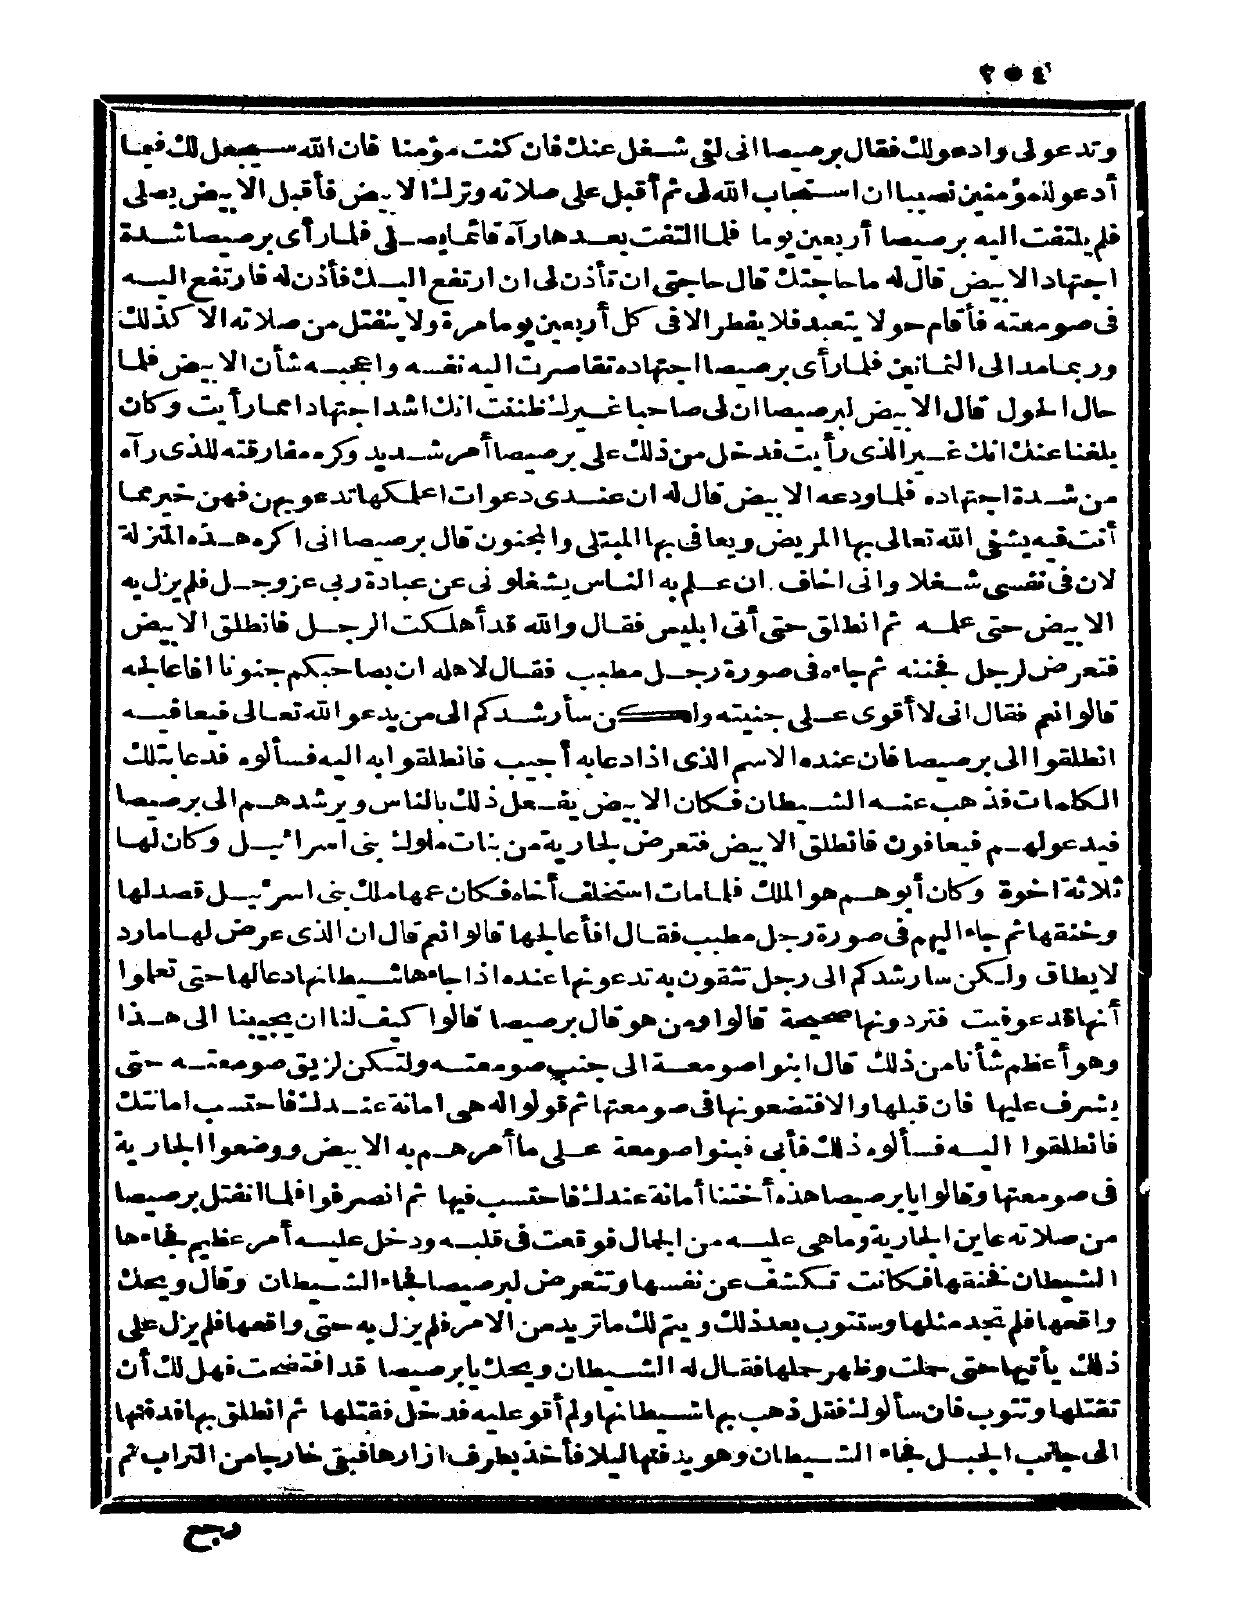 ٣٠٤
وتدعولى وادعولك فقال برصيصا انى لفى شغل عنك فان كنت مؤمنا فان الله سيجعل لك فيما
أدعو للمؤمنين نصيبا ان استجاب الله لى ثم أقبل على صلاته وترك الابيض فأقبل الابيض يصلى
فلم يلتفت اليه برصيصا أربعين يوما فلما التفت بعدها رآه قائما يصلى فلما رأى برصيصا شدة
اجتهاد الابيض قال له ما حاجتك قال حاجتى ان تأذن لى ان ارتفع اليك فأذن له فارتفع اليه
فى صومعته فأقام حولا يتعبد فلا يفطر الا فى كل أربعين يوما مرة ولا ينفتل من صلاته الا كذلك
وربما مد الى الثمانين فلما رأى برصيصا اجتهاده تقاصرت اليه نفسه واعجبه شأن الابيض فلما
حال الحول قال الابيض لبرصيصا ان لى صاحبا غيرك ظننت انك اشد اجتهادا مما رأيت وكان
بلغنا عنك انك غير الذى رأيت فدخل من ذلك على برصيصا أمر شديد وكره مفارقته للذى رآه
من شدة اجتهاده فلما ودعه الابيض قال له ان عندى دعوات اعلمكها تدعو بهن فهن خير مما
أنت فيه يشفى الله تعالى بها المريض ويعافى بها المبتلى والمجنون قال برصيصا انى اكره هذه المنزلة
لان فى نفسى شغلا وانى اخاف ان علم به الناس يشغلونى عن عبادة ربى عز وجل فلم يزل به
الابيض حتى علمه ثم انطلق حتى أتى ابليس فقال والله قد أهلكت الرجل فانطلق الابيض
فتعرض لرجل فخنقه ثم جاءه فى صورة رجل مطبب فقال لاهله ان بصاحبكم جنونا افاعالجه
قالوا نعم فقال انى لا أقوى على جنيته ولكن سأرشدكم الى من يدعو الله تعالى فيعافيه
انطلقوا الى برصيصا فان عنده الاسم الذى اذا دعا به أجيب فانطلقوا به اليه فسألوه فدعا بتلك
الكلمات فذهب عنه الشيطان فكان الابيض يفعل ذلك بالناس ويرشدهم الى برصيصا
فيدعو لهم فيعافون فانطلق الابيض فتعرض لجارية من بنات ملوك بنى اسرائيل وكان لها
ثلاثة اخوة وكان أبوهم هو الملك فلما مات استخلف أخاه فكان عمها ملك بنى اسرئيل قصد لها
وخنقها ثم جاء اليهم فى صورة رجل مطبب فقال افأعالجها قالوا نعم قال ان الذى عرض لها مارد
لا يطاق ولكن سارشدكم الى رجل تثقون به تدعونها عنده اذا جاءها شيطانها دعا لها حتى تعلموا
أنها قد عوفيت فتردونها صحيحة قالوا ومن هو قال برصيصا قالوا كيف لنا ان يجيبنا الى هذا
وهو أعظم شأنا من ذلك قال ابنوا صومعة الى جنب صومعته ولتكن لزيق صومعته حتى
يشرف عليها فان قبلها والا فتضعونها فى صومعتها ثم قولوا له هى امانة عندك فاحتسب امانتك
فانطلقوا اليه فسألوه ذلك فأبى فبنوا صومعة على ما أمرهم به الابيض ووضعوا الجارية
فى صومعتها وقالوا يا برصيصا هذه أختنا أمانة عندك فاحتسب فيها ثم انصرفوا فلما انفتل برصيصا
من صلاته عاين الجارية وما هى عليه من الجمال فوقعت فى قلبه ودخل عليه أمر عظيم فجاءها
الشيطان فخنقها فكانت تكشف عن نفسها وتتعرض لبرصيصا فجاء الشيطان وقال ويحك
واقعها فلم تجد مثلها وستتوب بعد ذلك ويتم لك ما تريد من الامر فلم يزل به حتى واقعها فلم يزل على
ذلك يأتيها حتى حملت وظهر حملها فقال له الشيطان ويحك يا برصيصا قد افتضحت فهل لك أن
تقتلها وتتوب فان سألوك فقل ذهب بها شيطانها ولم أقو عليه فدخل فقتلها ثم انطلق بها فدفنها
الى جانب الجبل فجاء الشيطان وهو يدفنها ليلا فأخذ بطرف ازارها فبقى خارجا من التراب ثم
رجع